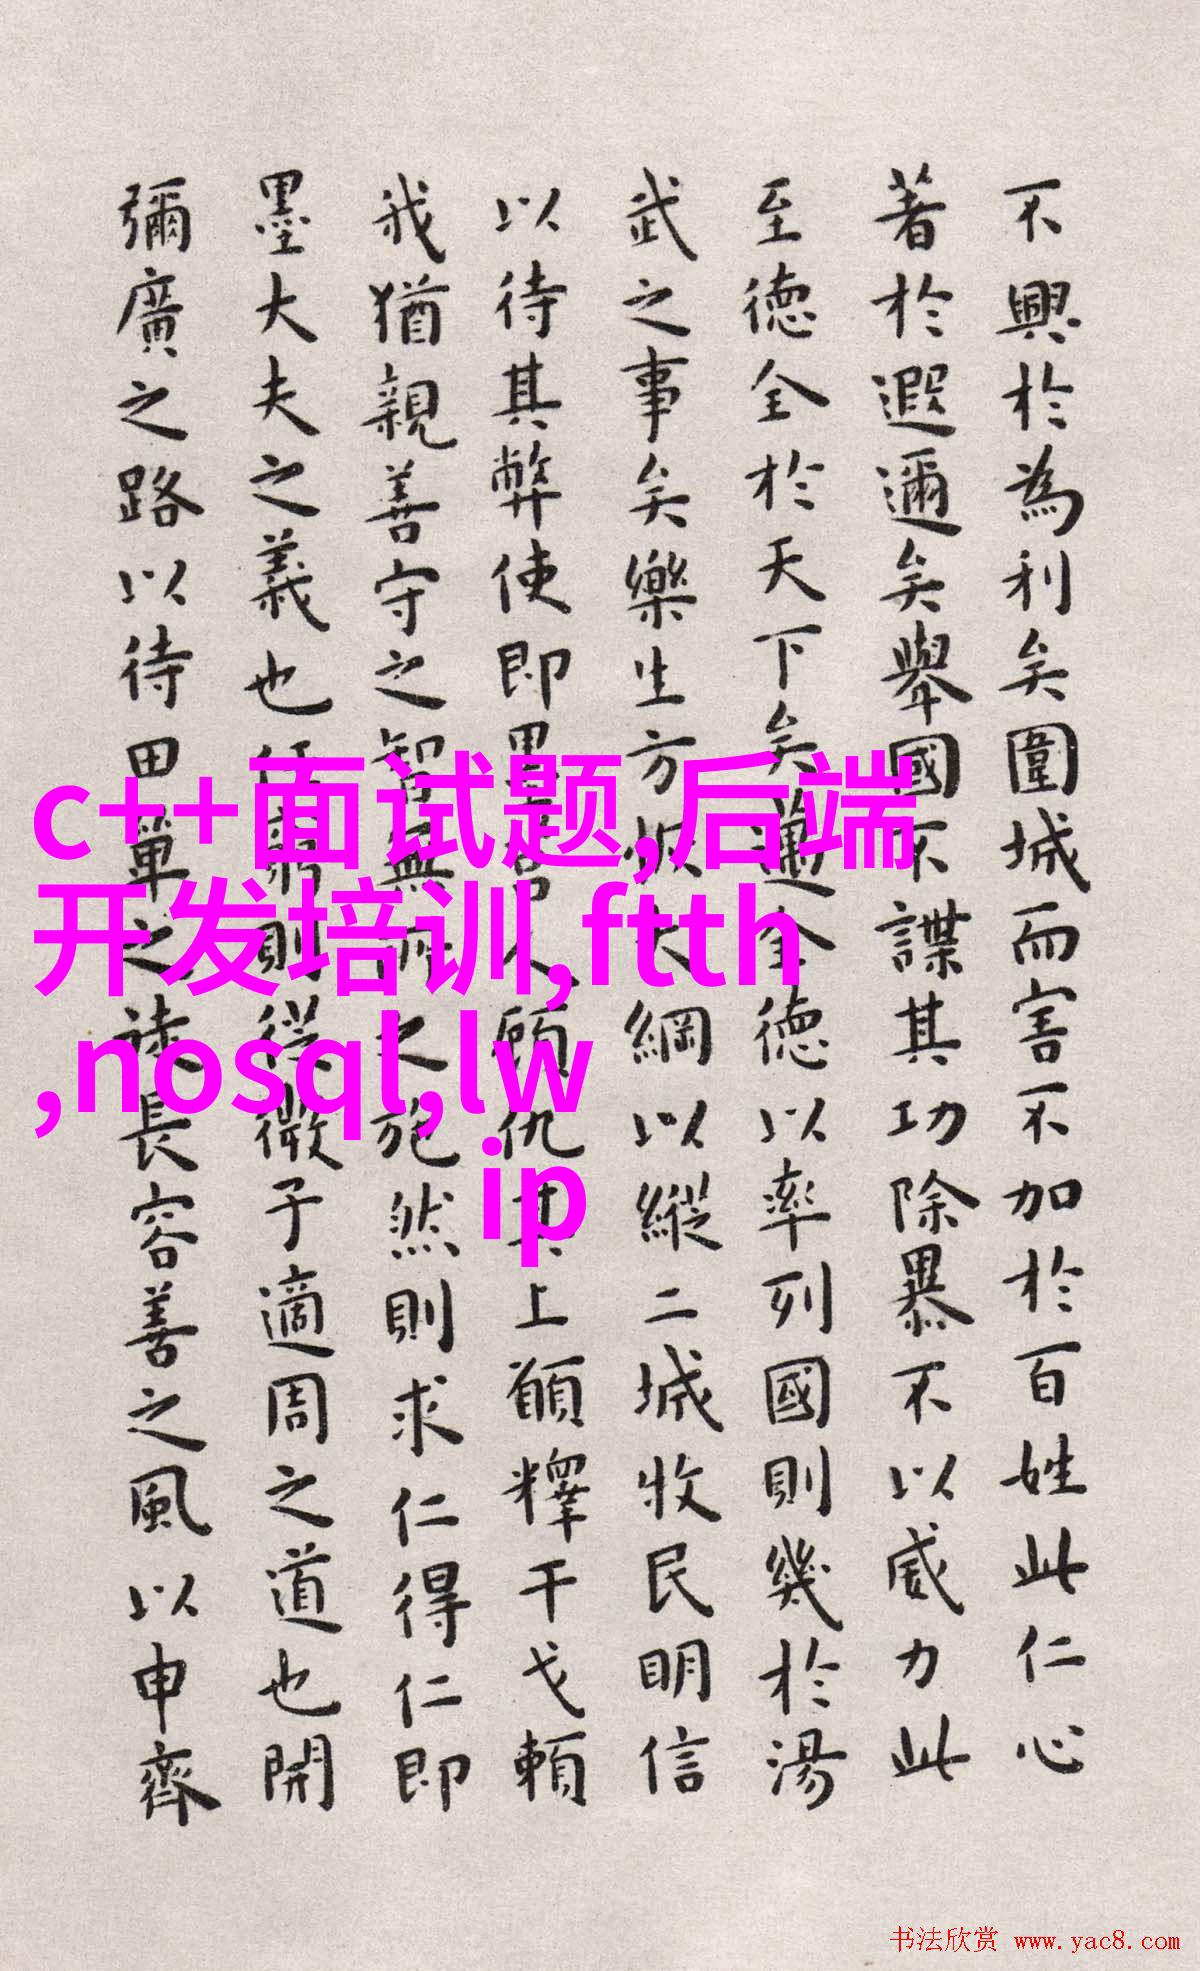 不興於為利矣圍城而害不加於百姓此仁心
著於遐邇矣舉國不謀其功除暴不以威力此
至德全於天下矣邁全德以率列國則幾於湯
武之事矣樂生方恢大綱以縱二城收民明信
以待其弊使即墨莒人顧仇其上願釋干戈賴
我猶親善守之智無所之施然則求仁得仁即
墨大夫之義也任窮則從微子適周之道也開
彌廣之路以待田單之徒長容善之風以申齊
c++面试题,后端
开发培训,ftth
,nosql,lw
ip
书法欣赏 www.yac8.com